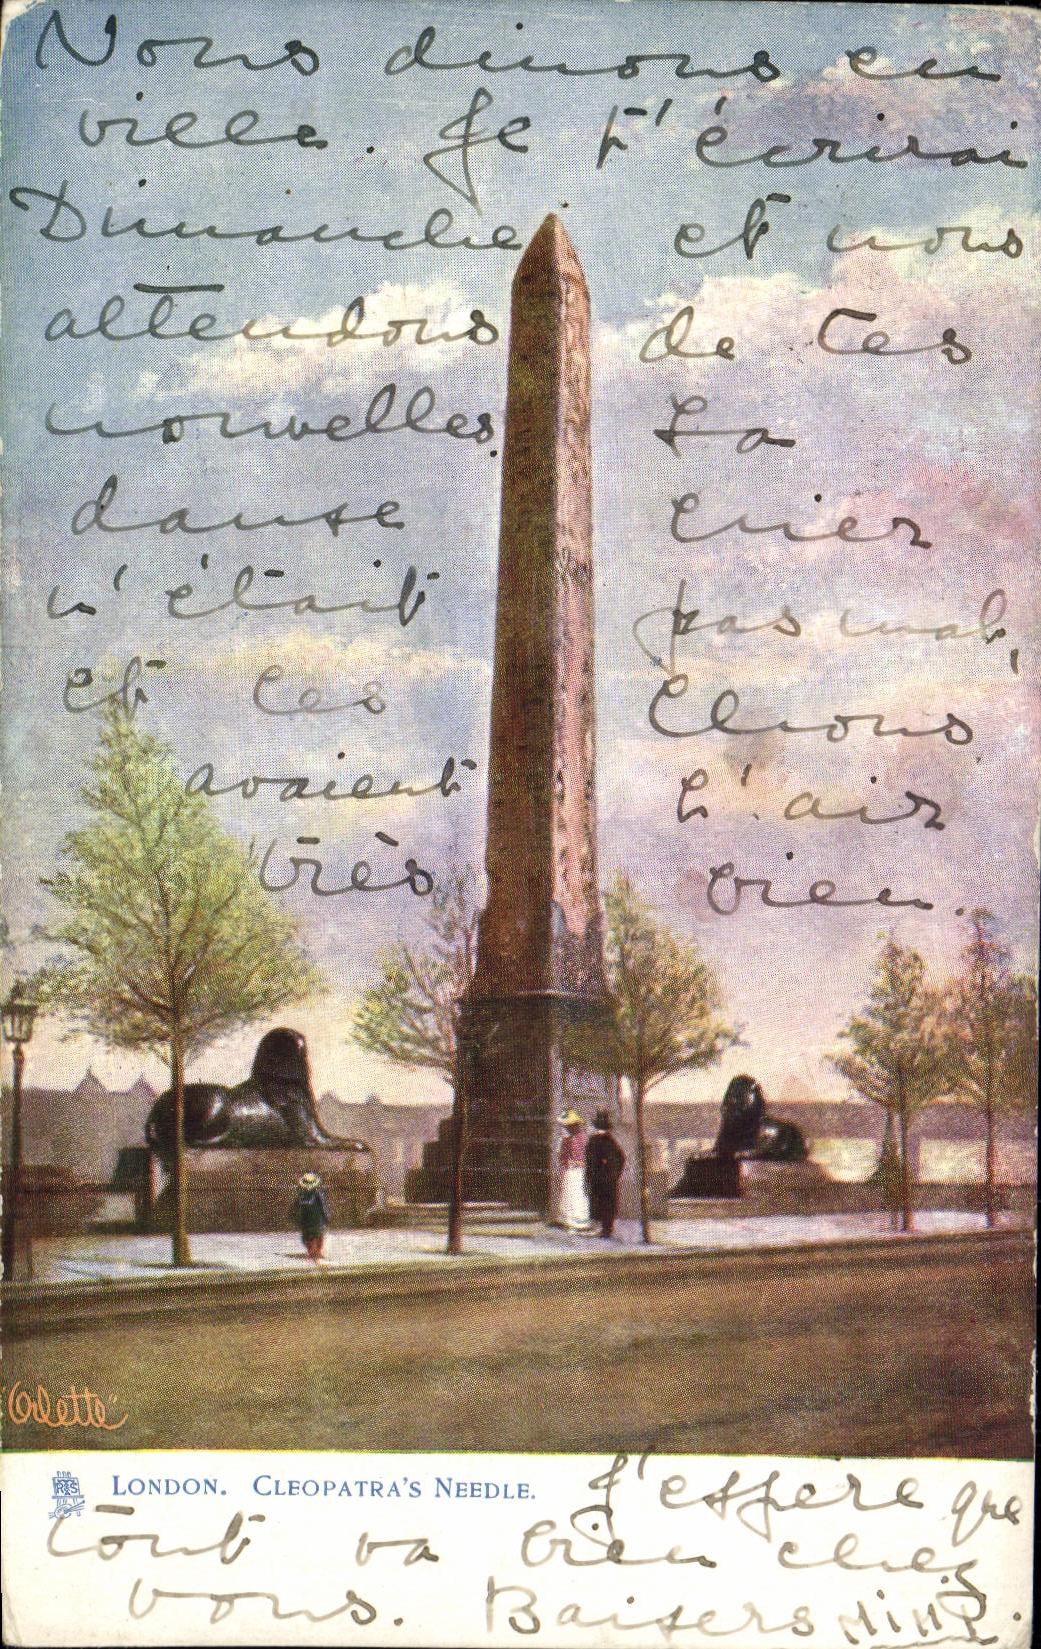 Nous dinons en
ville. Je t'écrirai
Dimanche et nous
attendons de tes
nouvelles. La
danse hier
n'était pas mal,
et les Chous
avaient l'air
très bien.
"Orlette"
RTS
LONDON. CLEOPATRA'S NEEDLE.
J'espère que
tout va bien chez
vous. Baisers